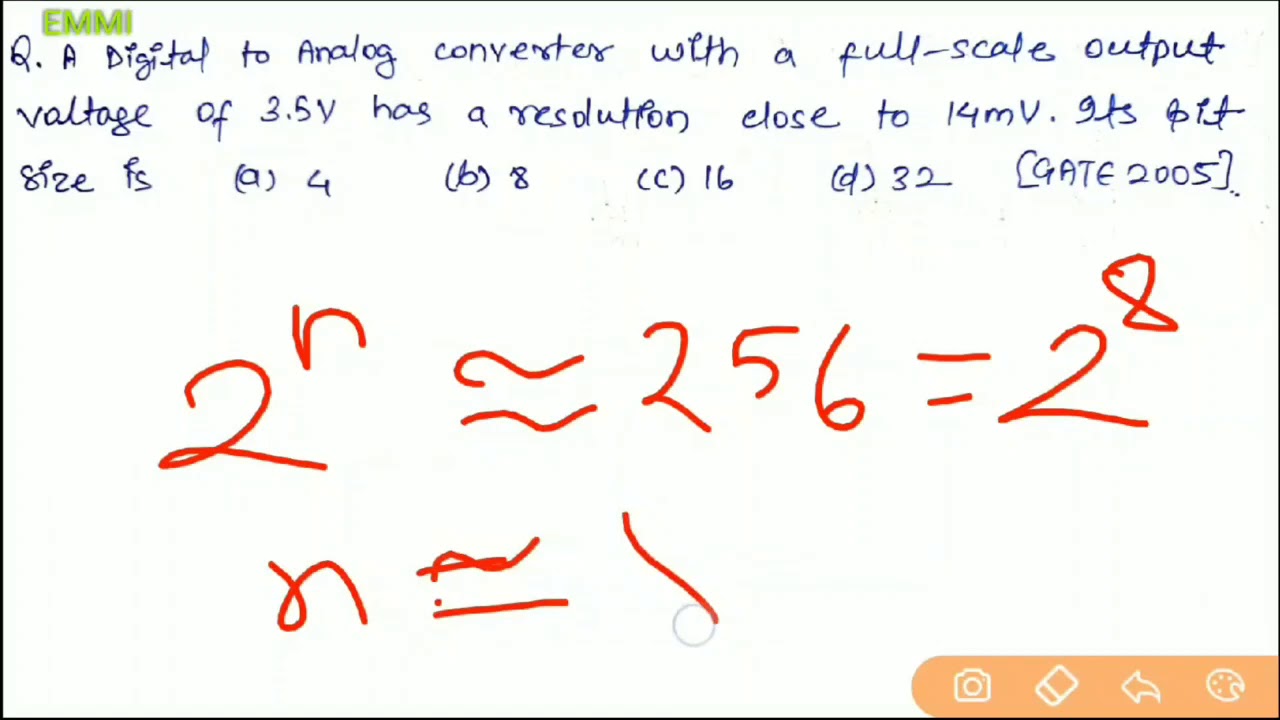 EMMI
Q. A Digital to Analog converter with a full-scale output
voltage of 3.5V has a resolution close to 14mV. Its bit
size is (a) 4 (b) 8 (c) 16 (d) 32 [GATE 2005].
2^n ≈ 256 = 2^8
n ≅